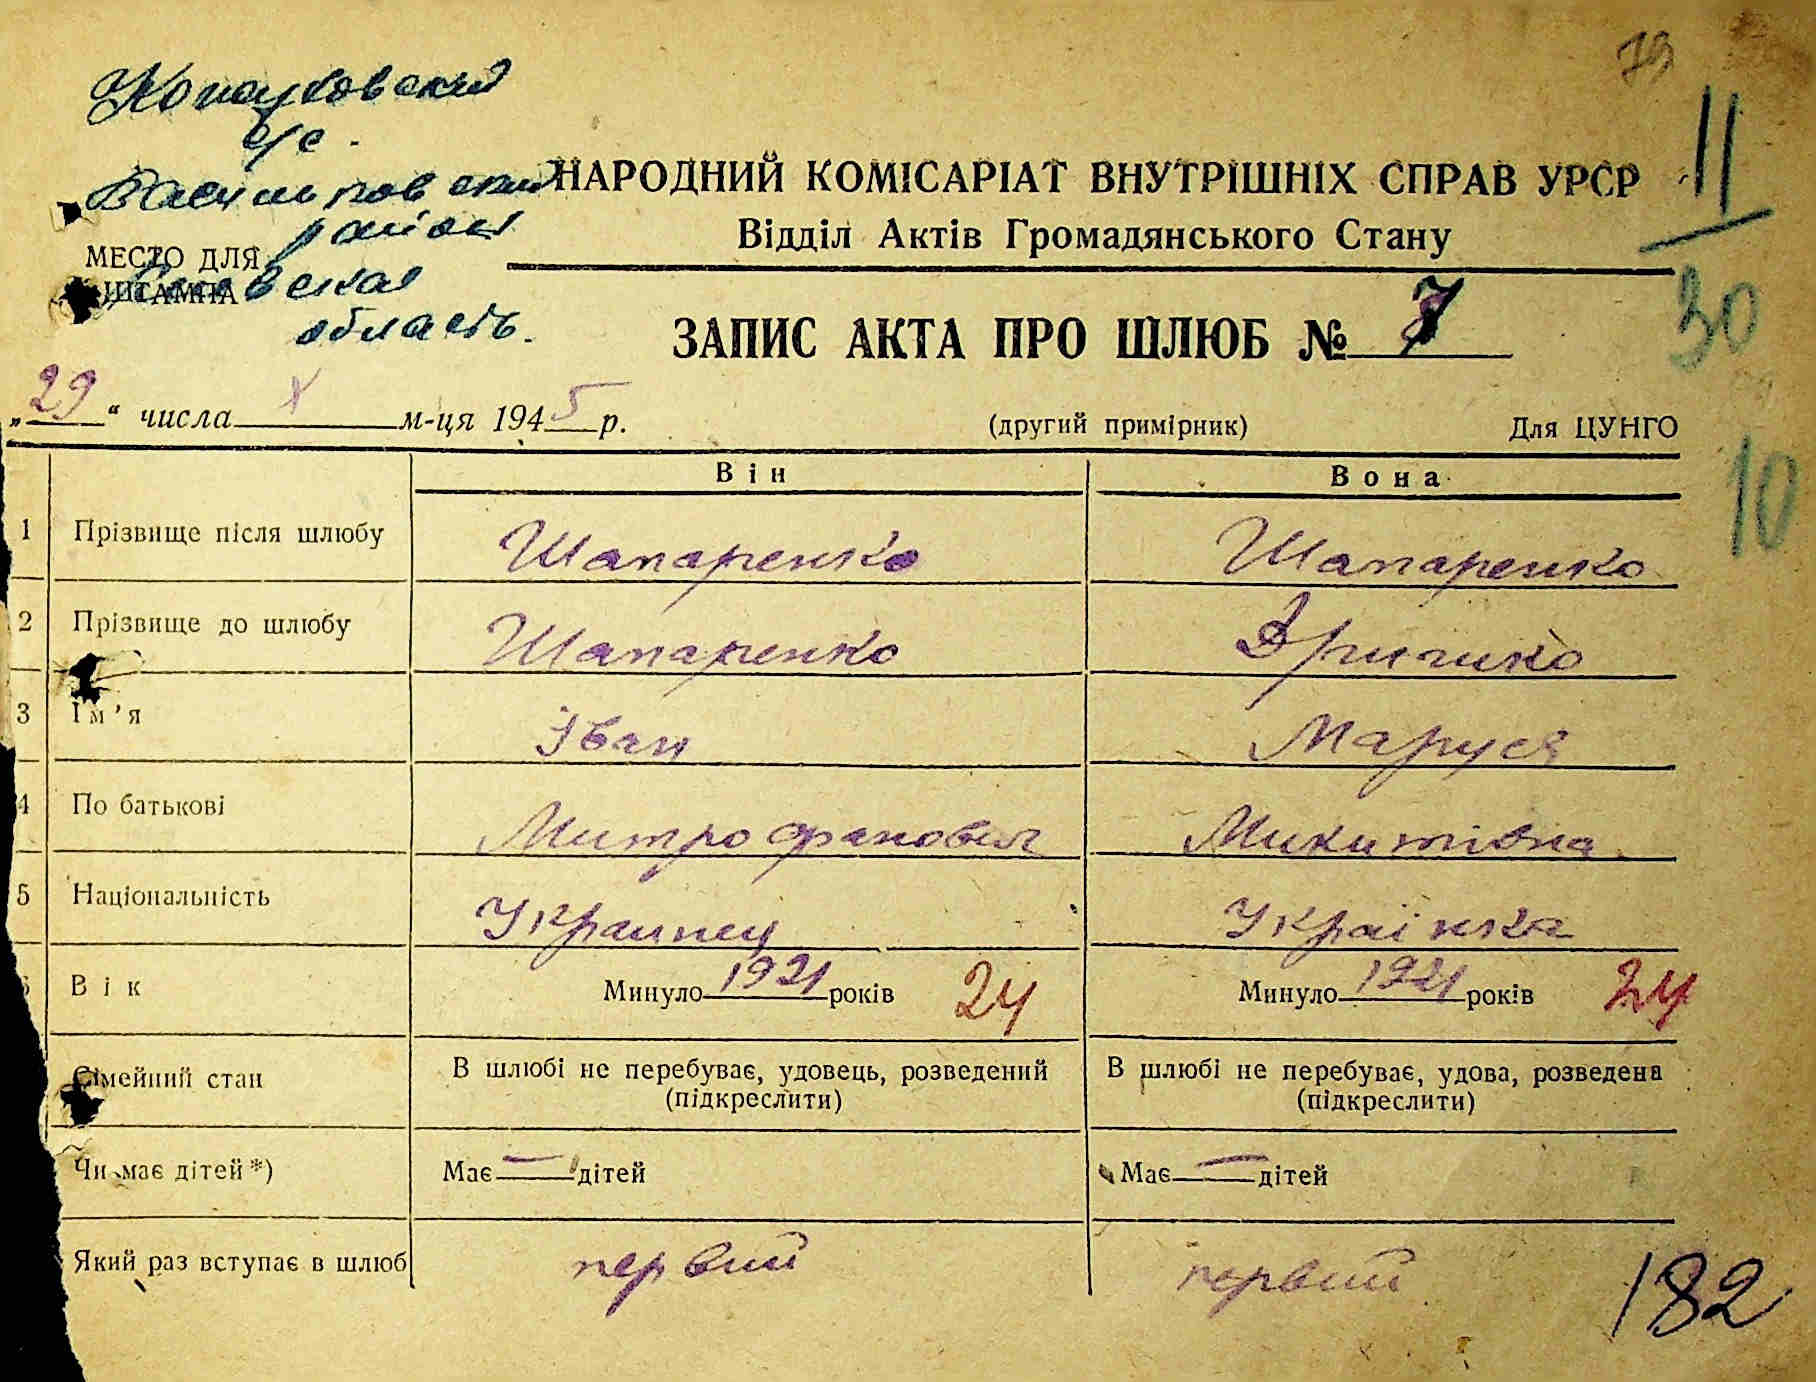 79
с/с.
Васильковский
район
МЕСТО ДЛЯ
ШТАМПА
Киевская
область.
НАРОДНИЙ КОМІСАРІАТ ВНУТРІШНІХ СПРАВ УРСР
Відділ Актів Громадянського Стану
11
30
10
ЗАПИС АКТА ПРО ШЛЮБ № 7
„29“ числа X м-ця 1945 р.
(другий примірник) Для ЦУНГО
Він Вона
1 Прізвище після шлюбу Шапаренко Шапаренко
2 Прізвище до шлюбу Шапаренко
3 Ім'я Іван Маруся
4 По батькові Митрофанович Микитівна
5 Національність Украинец Українка
Вік Минуло 1921 років 24 Минуло 1921 років 24
Сімейний стан В шлюбі не перебуває, удовець, розведений В шлюбі не перебуває, удова, розведена
(підкреслити) (підкреслити)
Чи має дітей*) Має — дітей Має — дітей
Який раз вступає в шлюб первий первий
182